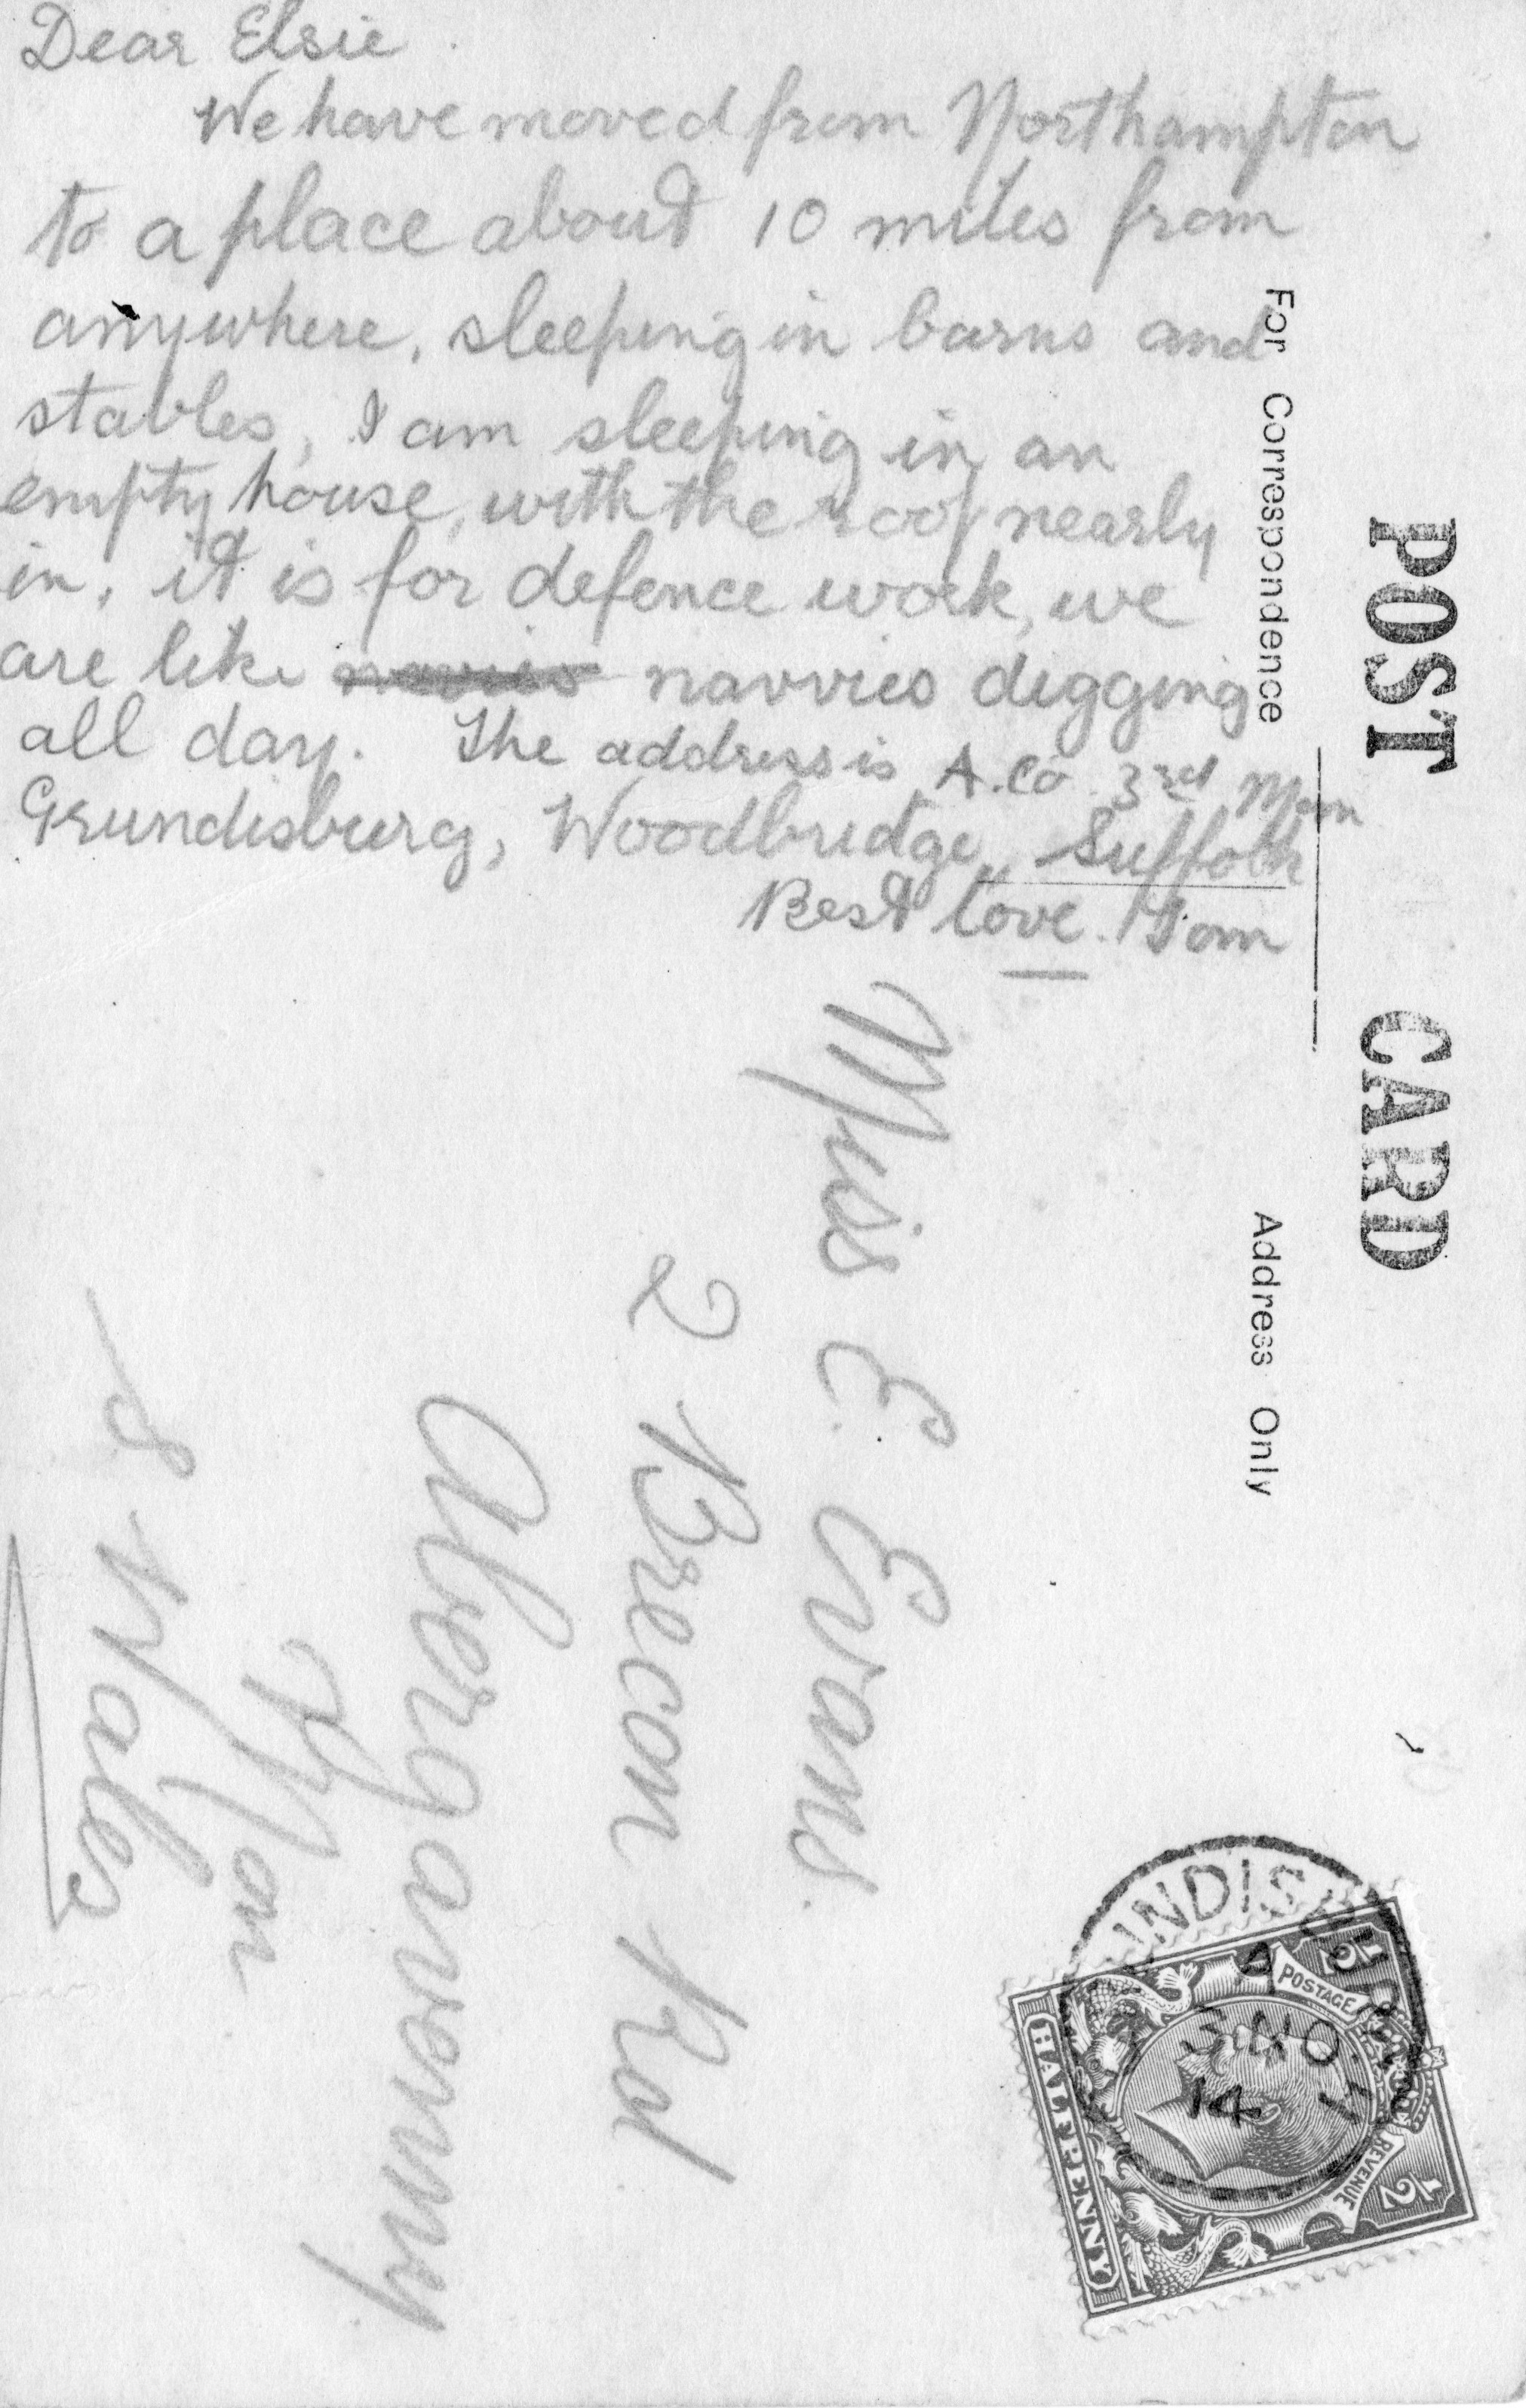 Dear Elsie.
We have moved from Northampton
to a place about 10 miles from
anywhere, sleeping in barns and
stables, I am sleeping in an
empty house, with the roof nearly
in, it is for defence work, we
are like navvies digging
all day. The address is A. Co. 3rd Mon
Grundisburg, Woodbridge, Suffolk
Best love. Tom
POST CARD
For Correspondence
Address Only
Miss E. Evans.
2 Brecon Rd
Abergavenny
Mon
S Wales
POSTAGE
REVENUE
HALFPENNY
1/2
1/2
NO
14